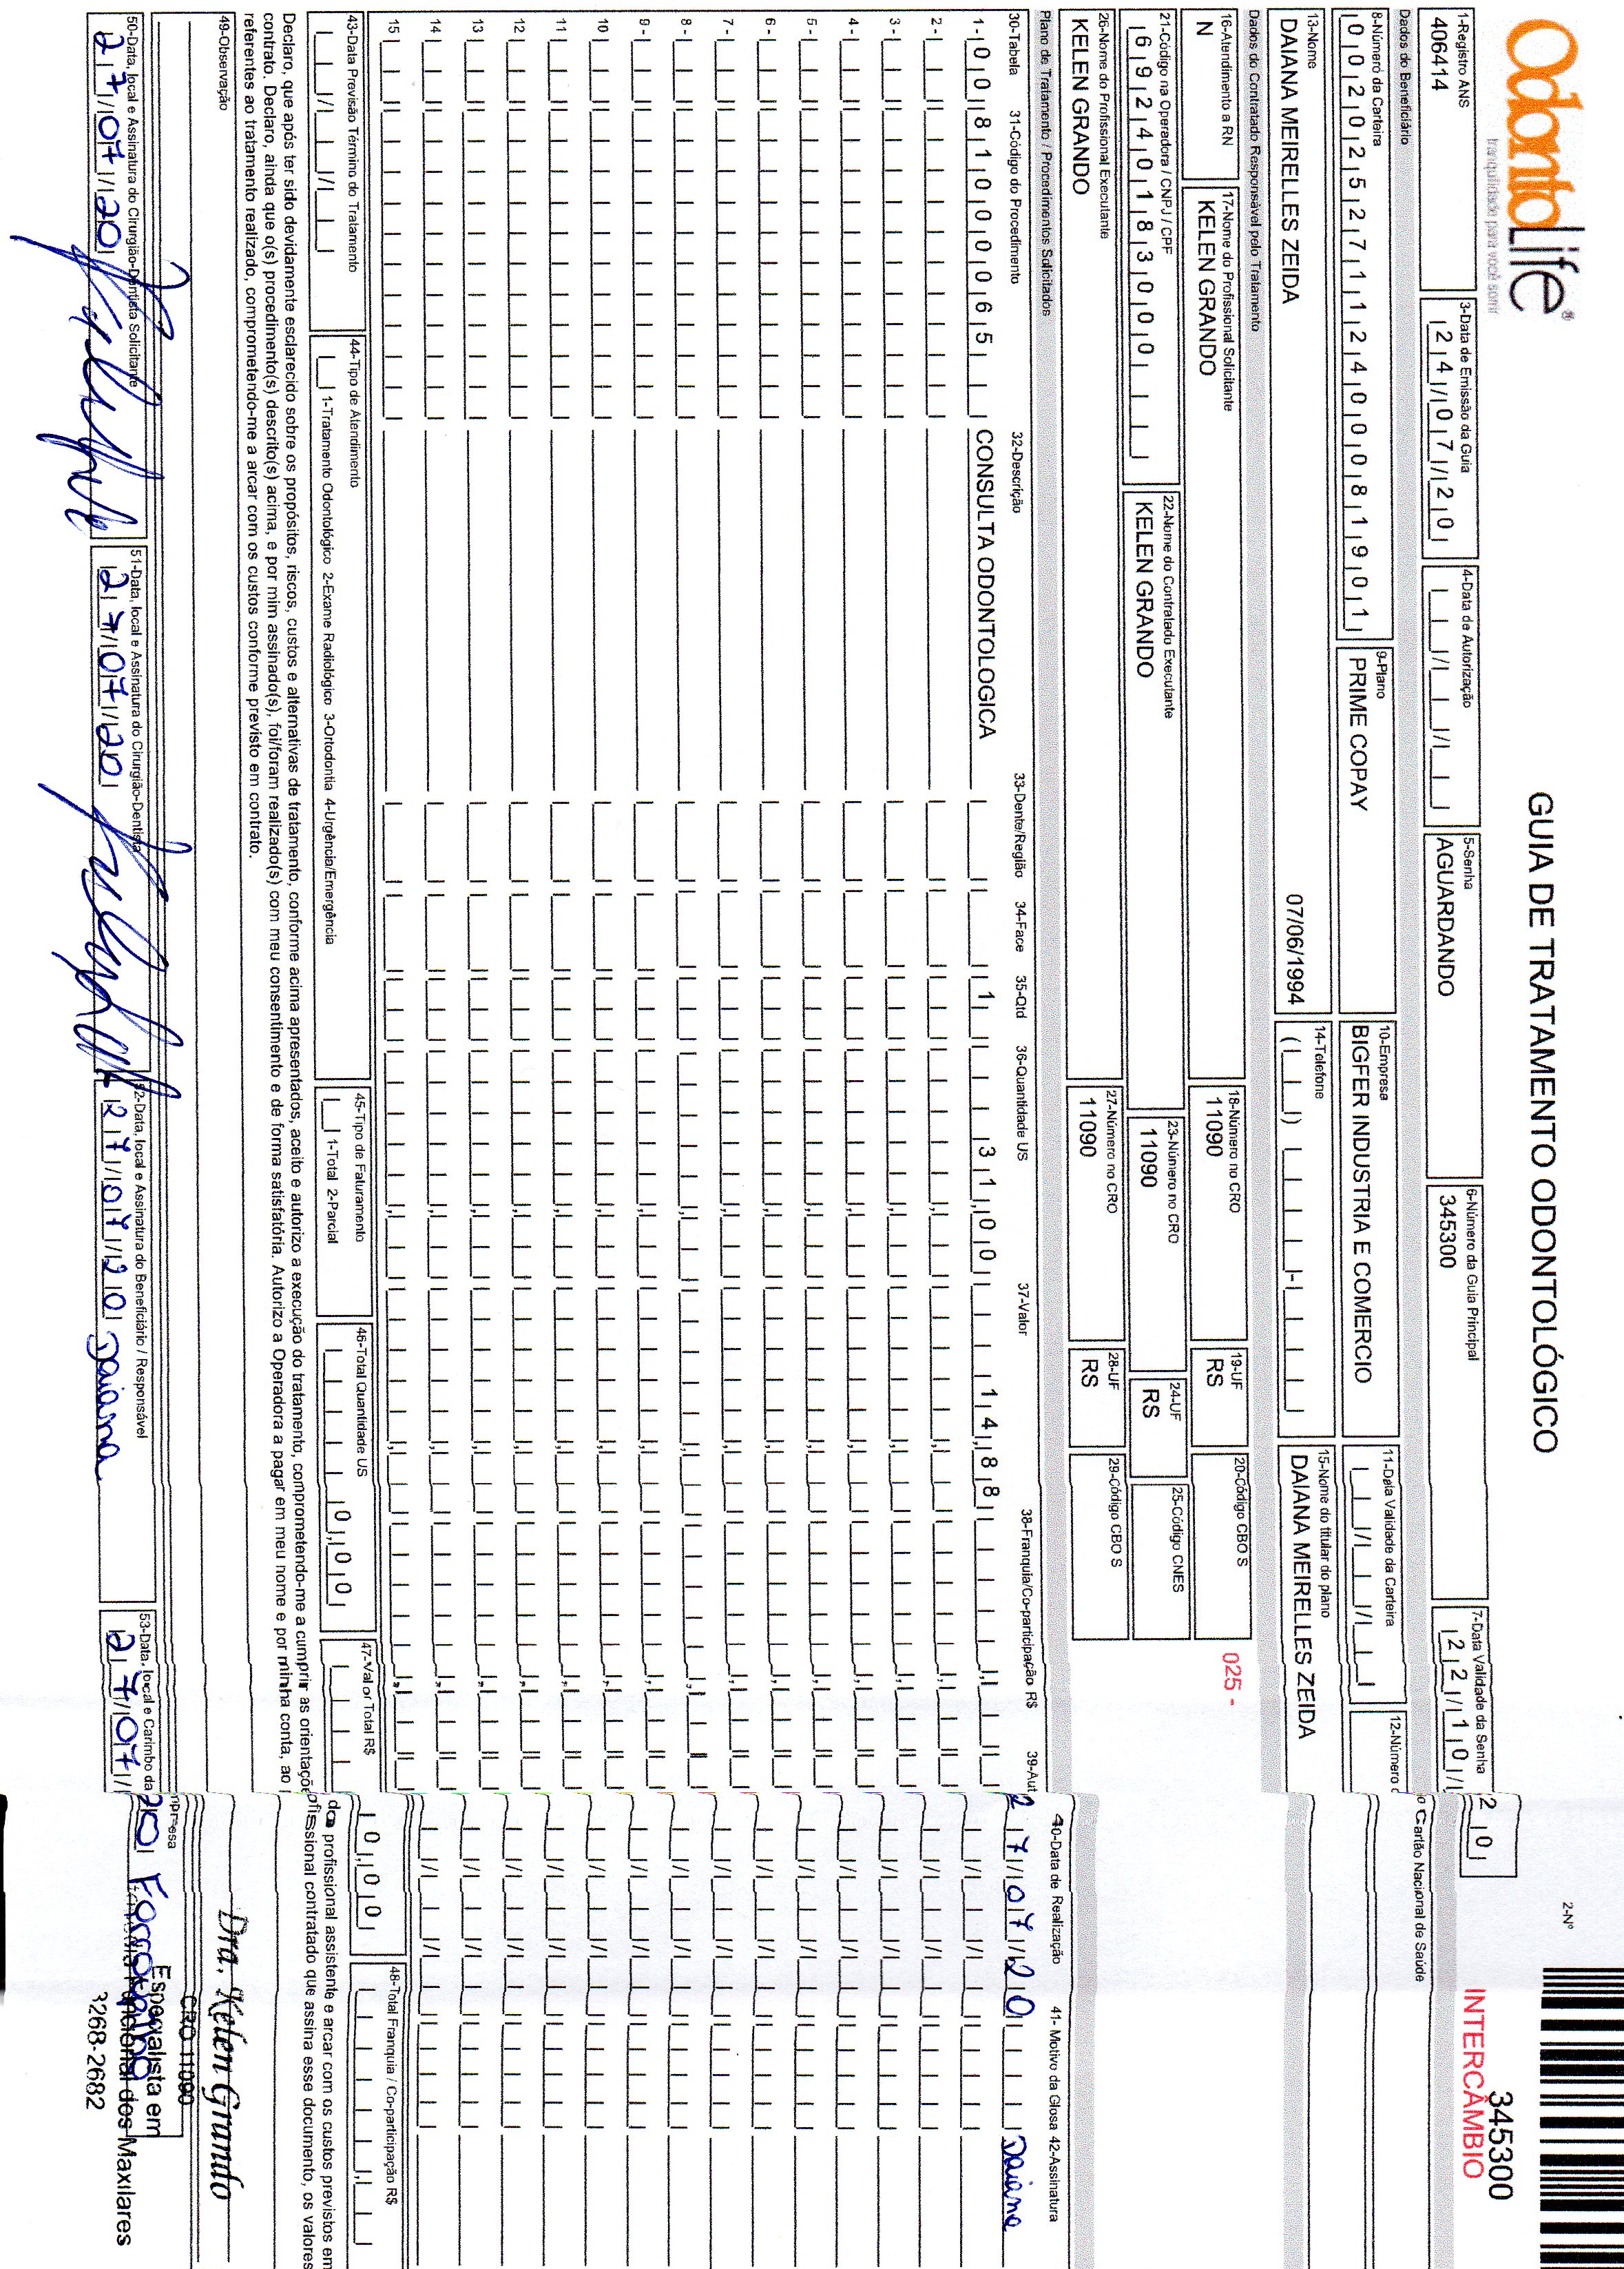 OdontoLife®
tranquilidade para você sorrir
GUIA DE TRATAMENTO ODONTOLÓGICO
2-Nº
345300
INTERCÂMBIO
1-Registro ANS
406414
3-Data de Emissão da Guia
24/07/20
4-Data de Autorização
5-Senha
AGUARDANDO
6-Número da Guia Principal
345300
7-Data Validade da Senha
22/10/20
Dados do Beneficiário
8-Número da Carteira
00202527112400081901
9-Plano
PRIME COPAY
10-Empresa
BIGFER INDUSTRIA E COMERCIO
11-Data Validade da Carteira
12-Número do Cartão Nacional de Saúde
13-Nome
DAIANA MEIRELLES ZEIDA 07/06/1994
14-Telefone
15-Nome do titular do plano
DAIANA MEIRELLES ZEIDA
Dados do Contratado Responsável pelo Tratamento
16-Atendimento a RN
N
17-Nome do Profissional Solicitante
KELEN GRANDO
18-Número no CRO
11090
19-UF
RS
20-Código CBO S
025 -
21-Código na Operadora / CNPJ / CPF
69240183000
22-Nome do Contratado Executante
KELEN GRANDO
23-Número no CRO
11090
24-UF
RS
25-Código CNES
26-Nome do Profissional Executante
KELEN GRANDO
27-Número no CRO
11090
28-UF
RS
29-Código CBO S
Plano de Tratamento / Procedimentos Solicitados
30-Tabela 31-Código do Procedimento 32-Descrição 33-Dente/Região 34-Face 35-Qtd 36-Quantidade US 37-Valor 38-Franquia/Co-participação R$ 39-Aut 40-Data de Realização 41- Motivo da Glosa 42-Assinatura
1- 00 81000065 CONSULTA ODONTOLOGICA 1 31,00 14,88 27/07/20 Daiana
2 -
3 -
4 -
5 -
6 -
7 -
8 -
9 -
10
11
12
13
14
15
43-Data Previsão Término do Tratamento
44-Tipo de Atendimento
1-Tratamento Odontológico 2-Exame Radiológico 3-Ortodontia 4-Urgência/Emergência
45-Tipo de Faturamento
1-Total 2-Parcial
46-Total Quantidade US
0,00
47-Valor Total R$
0,00
48-Total Franquia / Co-participação R$
Declaro, que após ter sido devidamente esclarecido sobre os propósitos, riscos, custos e alternativas de tratamento, conforme acima apresentados, aceito e autorizo a execução do tratamento, comprometendo-me a cumprir as orientações do profissional assistente e arcar com os custos previstos em
contrato. Declaro, ainda que o(s) procedimento(s) descrito(s) acima, e por mim assinado(s), foi/foram realizado(s) com meu consentimento e de forma satisfatória. Autorizo a Operadora a pagar em meu nome e por minha conta, ao profissional contratado que assina esse documento, os valores
referentes ao tratamento realizado, comprometendo-me a arcar com os custos conforme previsto em contrato.
49-Observação
Dra. Kelen Grando
CRO 11090
Especialista em
dos Maxilares
3268-2682
50-Data, local e Assinatura do Cirurgião-Dentista Solicitante
27/07/20
51-Data, local e Assinatura do Cirurgião-Dentista
27/07/20
52-Data, local e Assinatura do Beneficiário / Responsável
27/07/20 Daiana
53-Data, local e Carimbo da Empresa
27/07/20